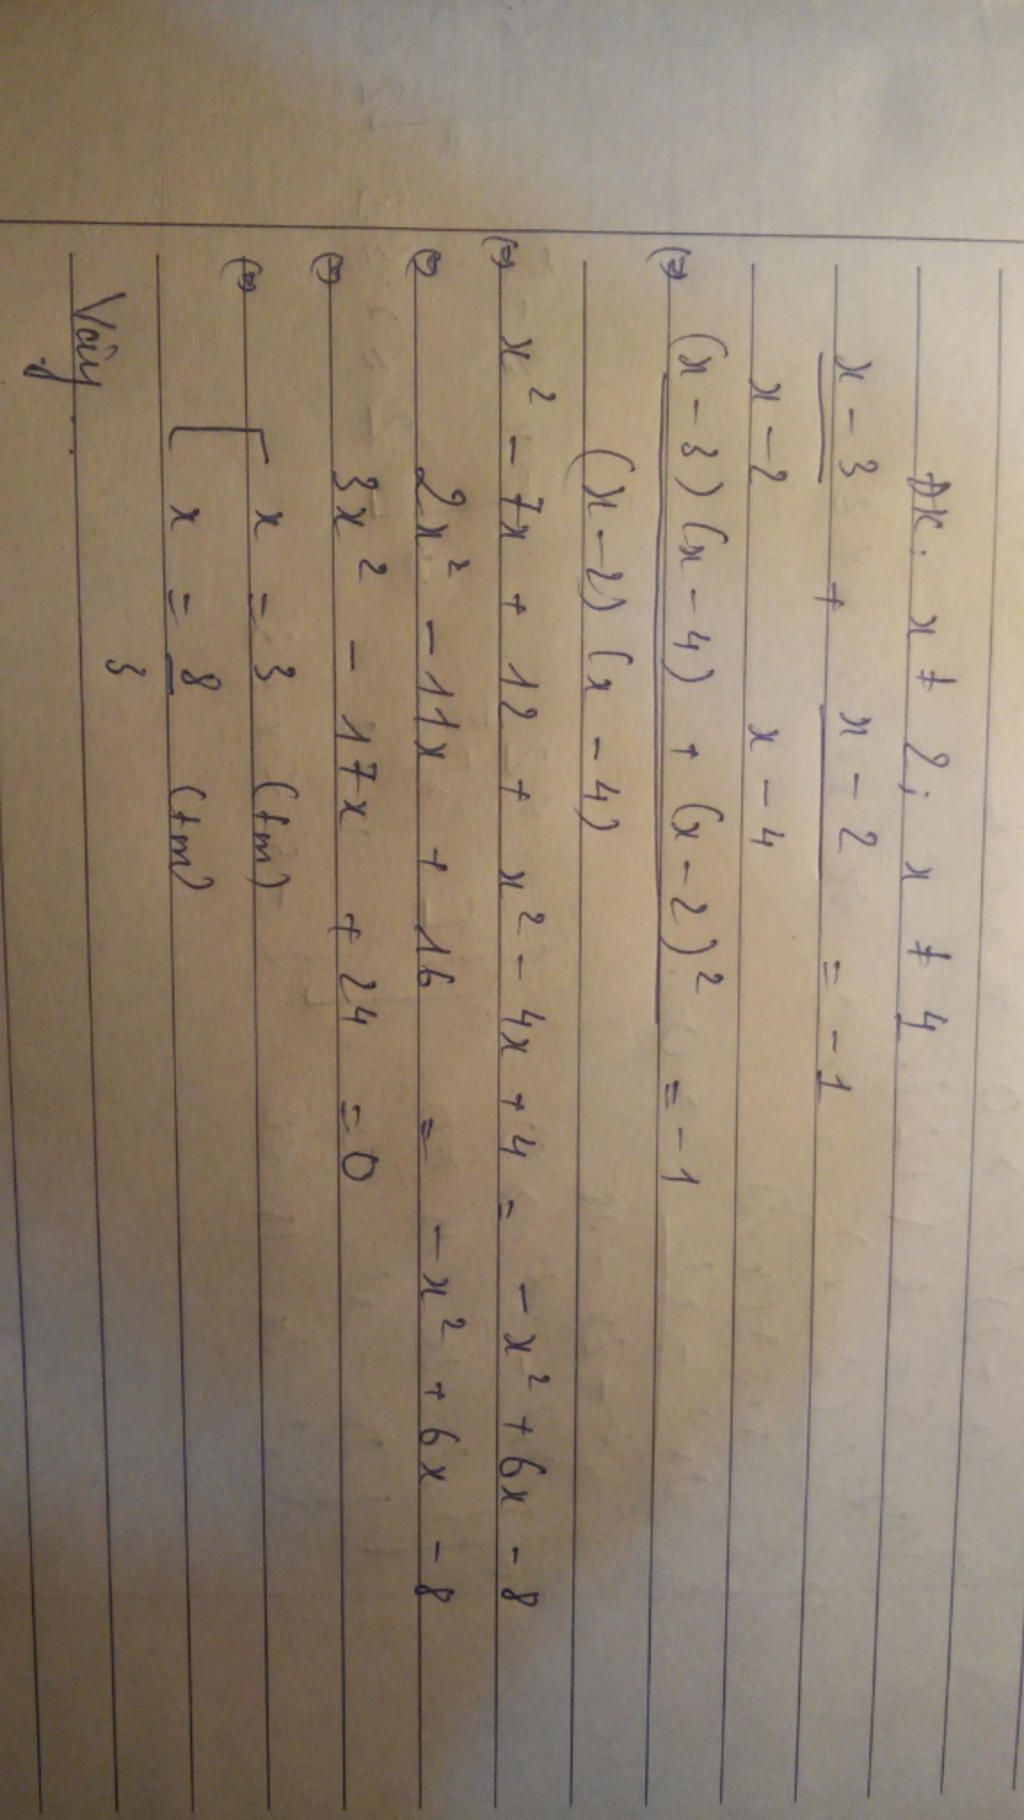 ĐK: x ≠ 2; x ≠ 4
x - 3 + x - 2 = -1
x - 2 x - 4
(=) (x - 3)(x - 4) + (x - 2)² = -1
(x - 2)(x - 4)
(=) x² - 7x + 12 + x² - 4x + 4 = -x² + 6x - 8
(=) 2x² - 11x + 16 = -x² + 6x - 8
(=) 3x² - 17x + 24 = 0
(=) [ x = 3 (tm)
[ x = 8 (tm)
3
Vậy .